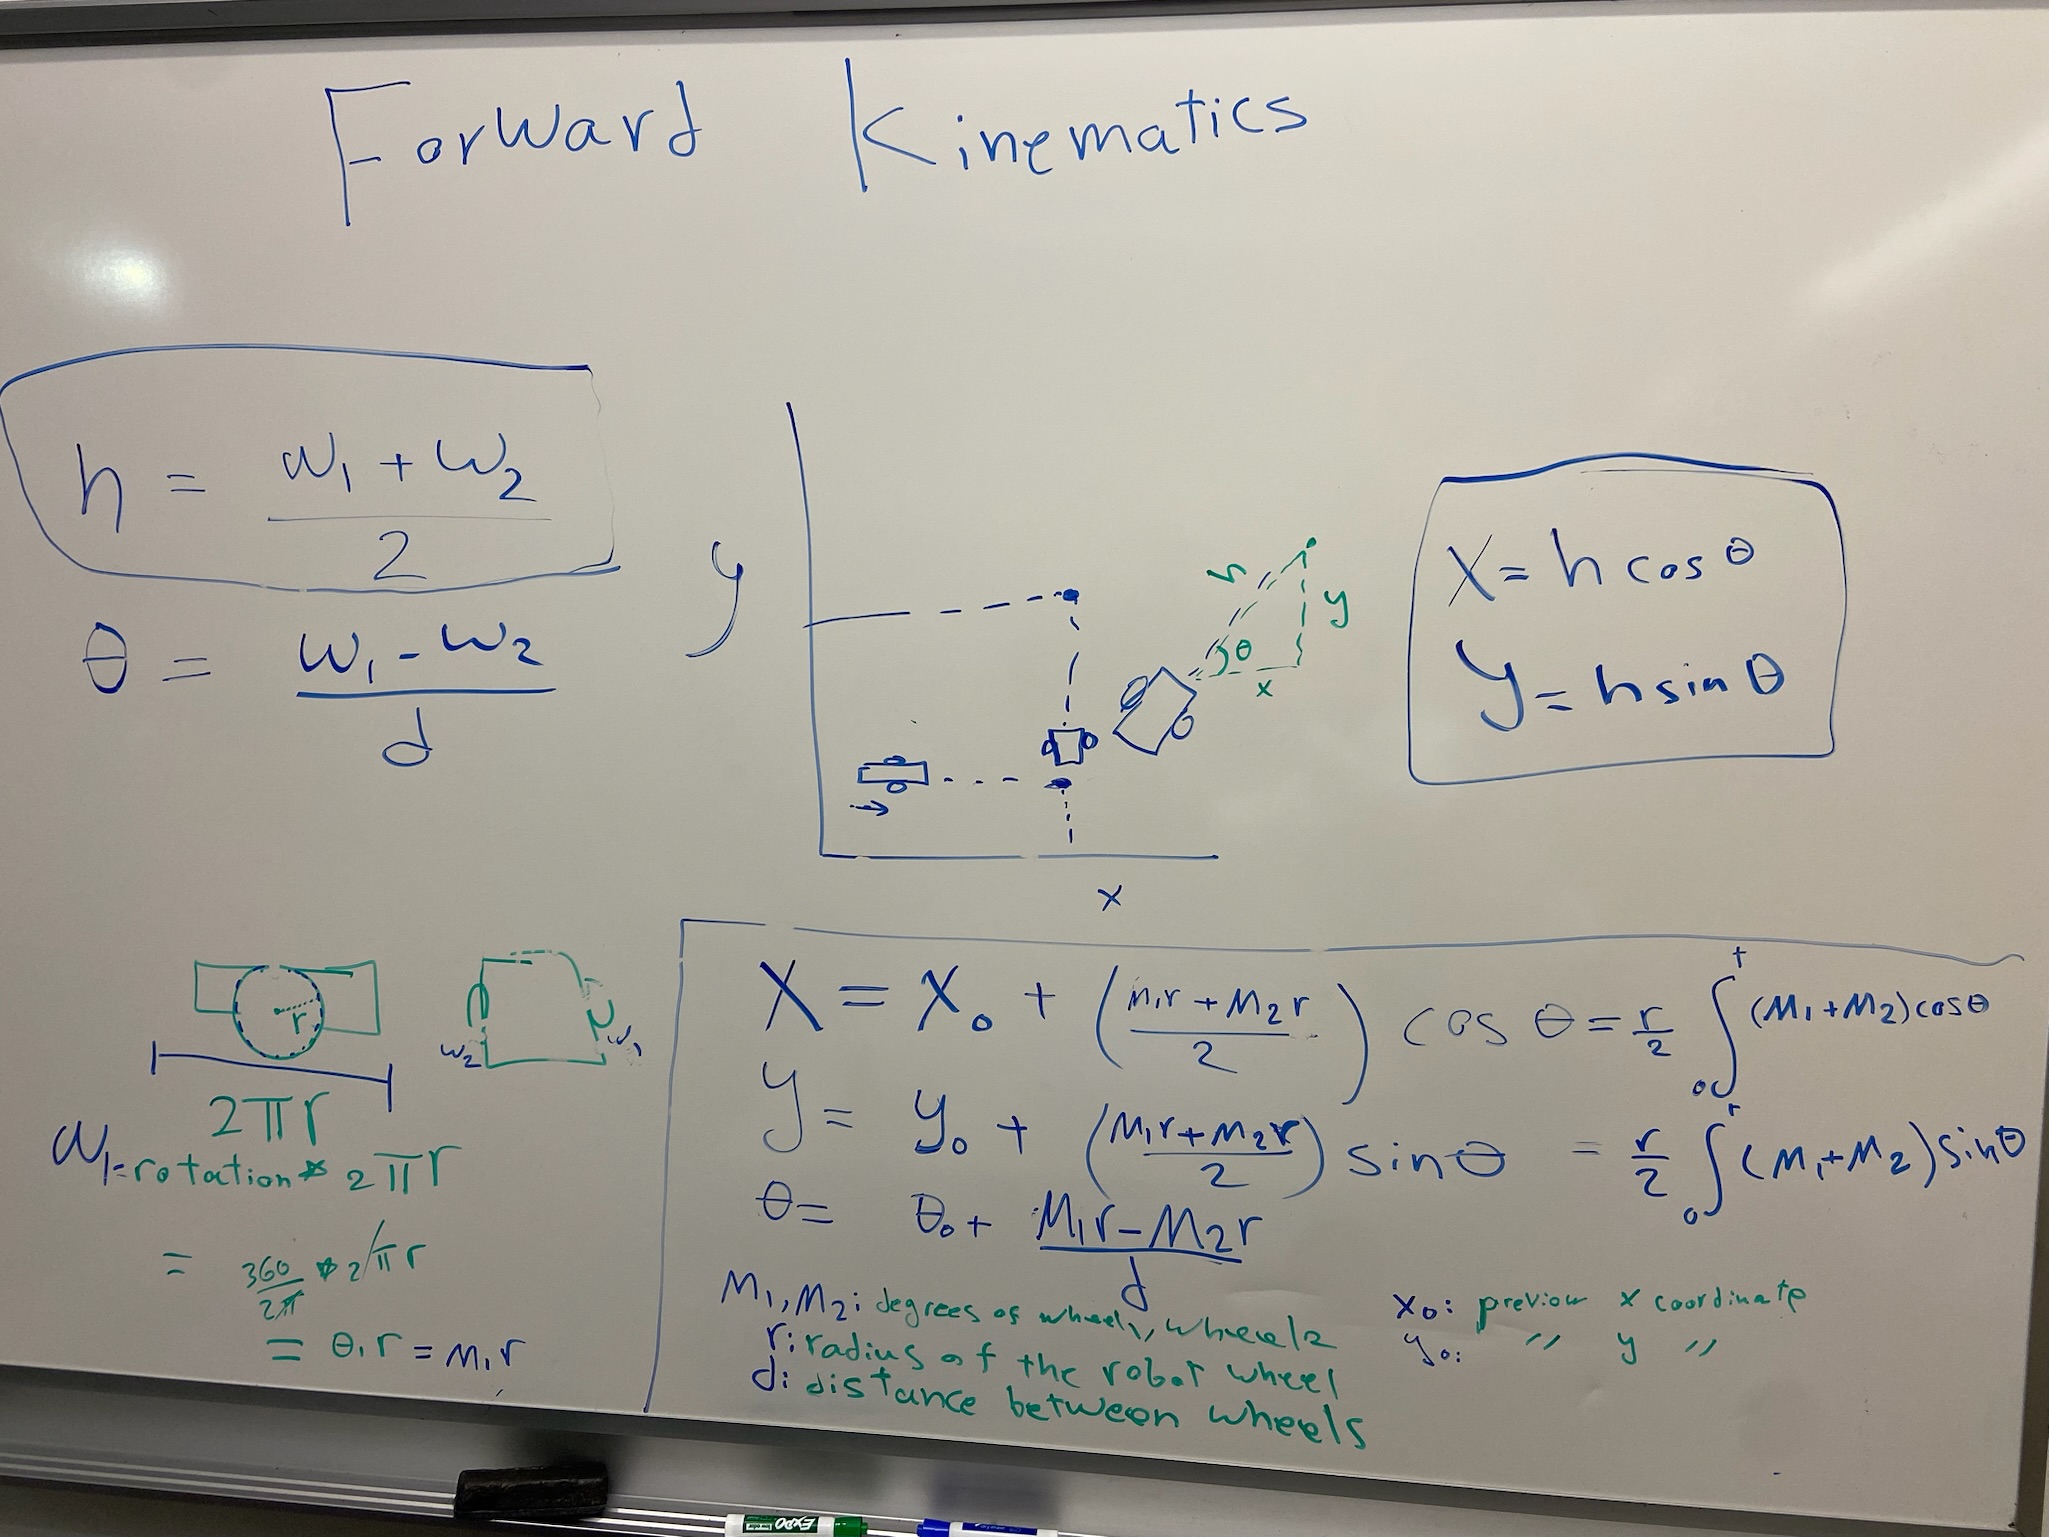 Forward Kinematics
h = w₁ + w₂ / 2
θ = w₁ - w₂ / d
y
x
h
θ
x
y
X = h cos θ
y = h sin θ
r
2πr
w₂
w₁
w₁ = rotation * 2πr
= 360/2π * 2πr
= θ₁r = M₁r
X = X₀ + (M₁r + M₂r / 2) cos θ = r/2 ∫₀ᵗ (M₁ + M₂) cos θ
y = y₀ + (M₁r + M₂r / 2) sin θ = r/2 ∫₀ᵗ (M₁ + M₂) sin θ
θ = θ₀ + M₁r - M₂r / d
M₁, M₂: degrees of wheel1, wheel2
r: radius of the robot wheel
d: distance between wheels
x₀: previou x coordinate
y₀: " y "
EXPO